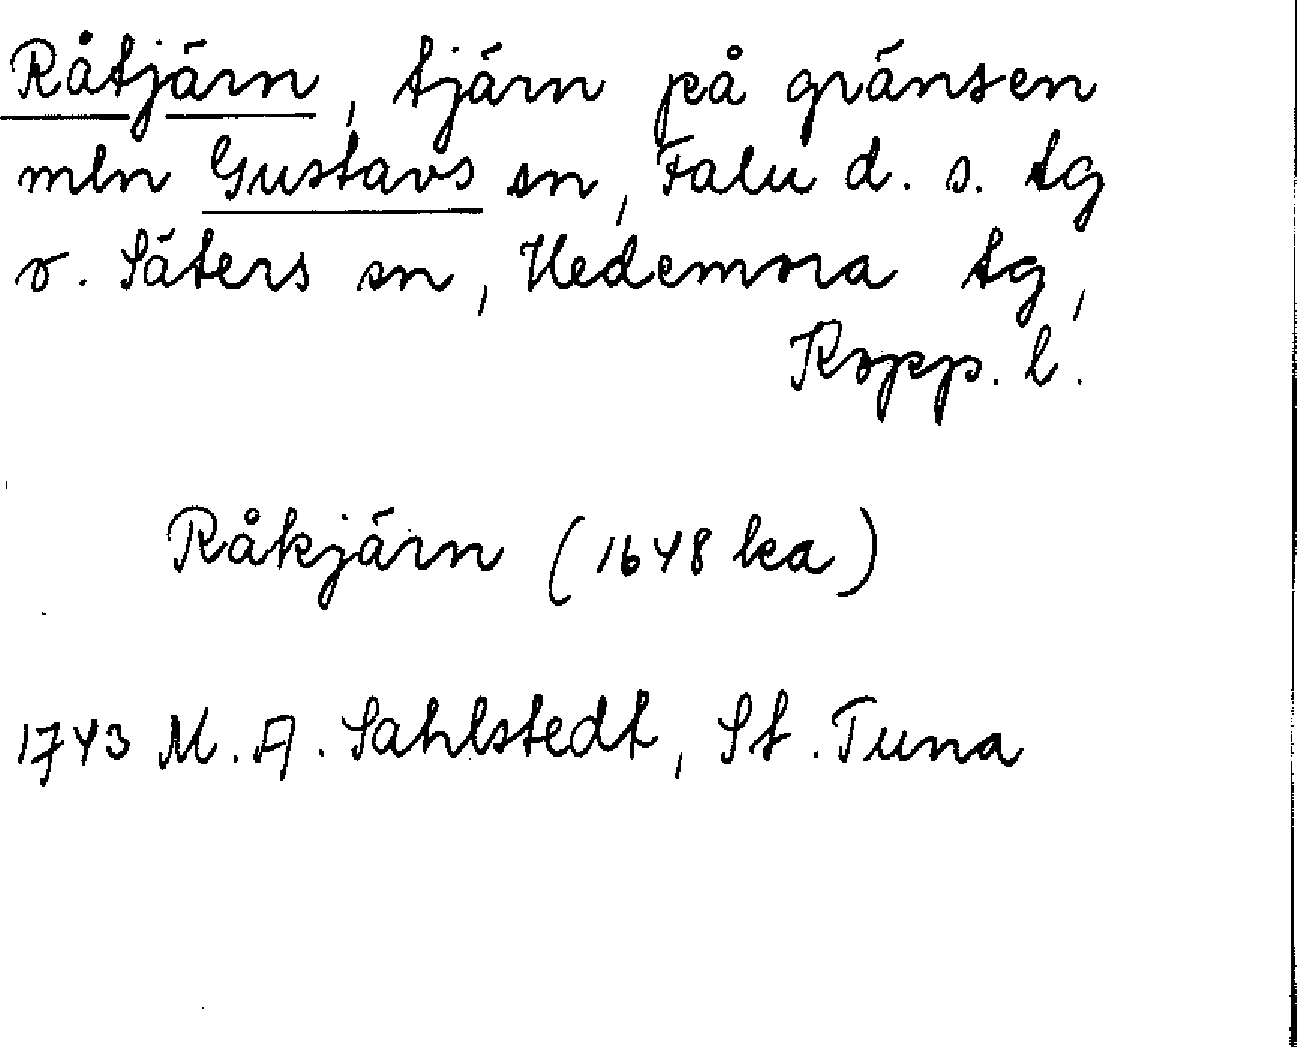 Råtjärn, tjärn på gränsen
mln Gustavs sn, Falu d. s. tg
o. Säters sn, Hedemora tg,
Kopp. l.
Råkjärn (1648 ka)
1743 M. A. Sahlstedt, St. Tuna